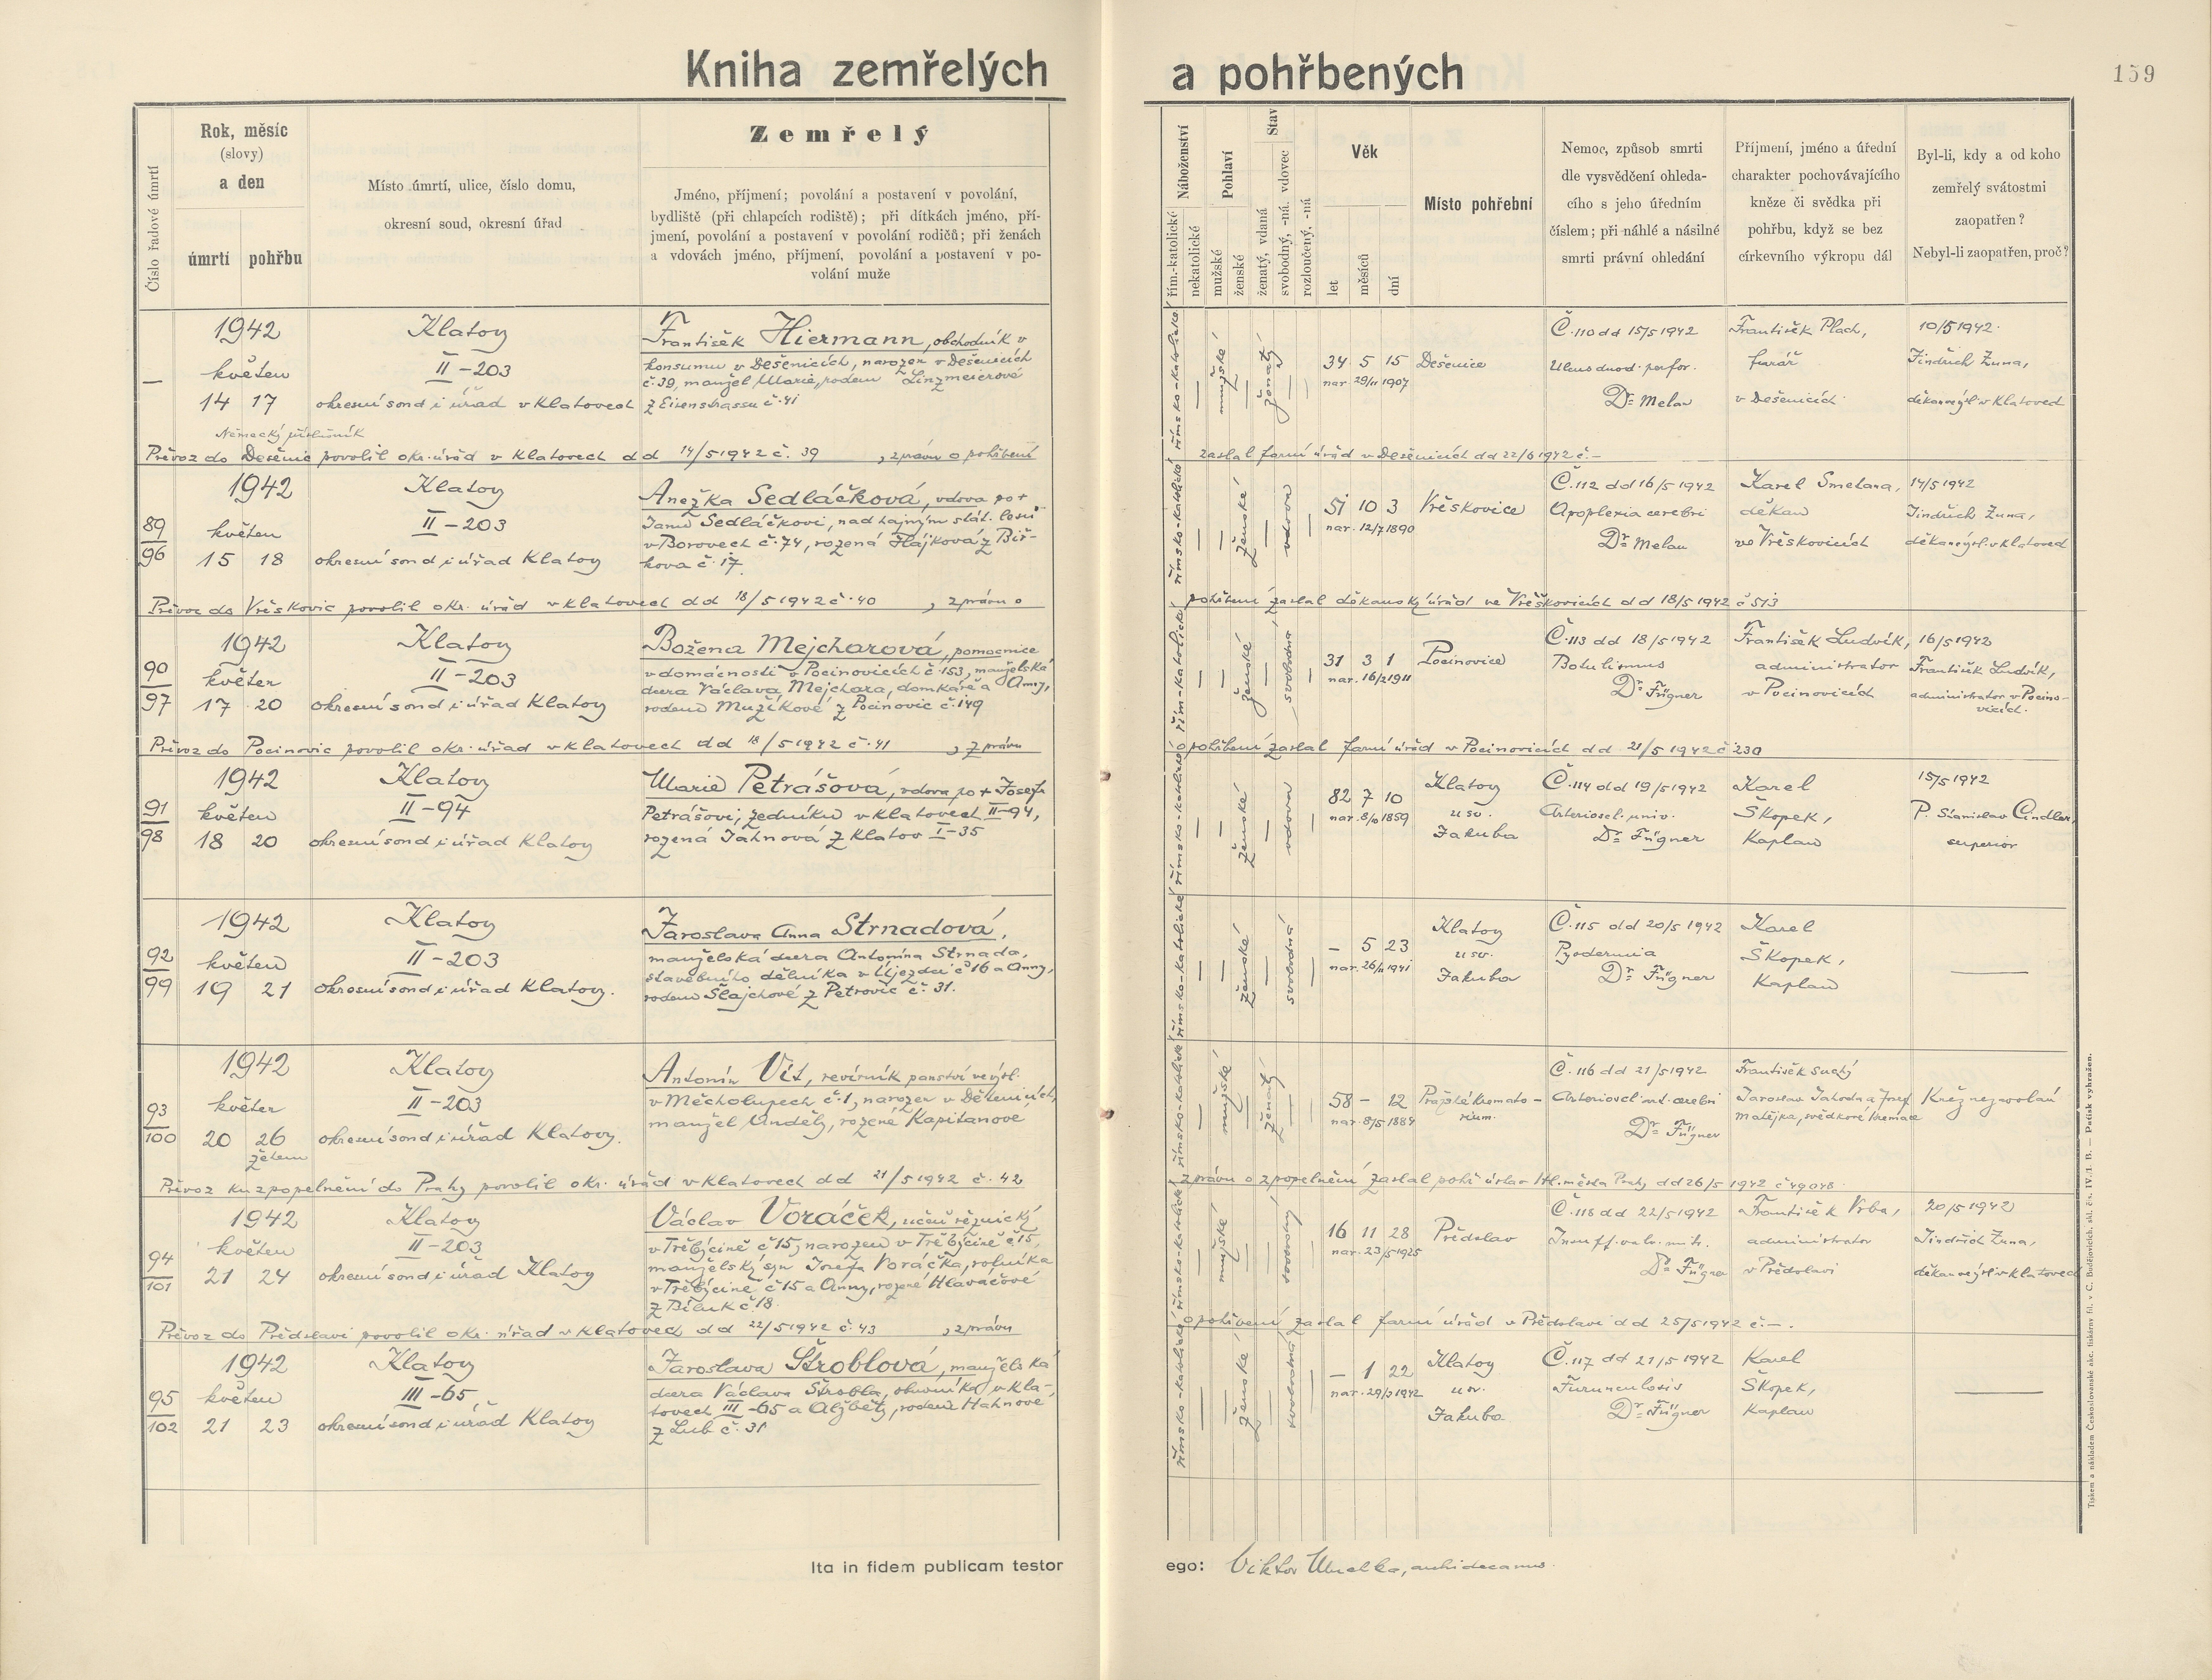 Kniha zemřelých a pohřbených
159
Číslo řadové úmrtí
Rok, měsíc
(slovy)
a den
úmrtí
pohřbu
Místo úmrtí, ulice, číslo domu,
okresní soud, okresní úřad
Zemřelý
Jméno, příjmení; povolání a postavení v povolání,
bydliště (při chlapcích rodiště); při dítkách jméno, pří-
jmení, povolání a postavení v povolání rodičů; při ženách
a vdovách jméno, příjmení, povolání a postavení v po-
volání muže
Náboženství
řím.-katolické
nekatolické
Pohlaví
mužské
ženské
Stav
ženatý, vdaná
svobodný, -ná. vdovec
rozloučený, -ná
Věk
let
měsíců
dní
Místo pohřební
Nemoc, způsob smrti
dle vysvědčení ohleda-
cího s jeho úředním
číslem; při náhlé a násilné
smrti právní ohledání
Příjmení, jméno a úřední
charakter pochovávajícího
kněze či svědka při
pohřbu, když se bez
církevního výkropu dál
Byl-li, kdy a od koho
zemřelý svátostmi
zaopatřen?
Nebyl-li zaopatřen, proč?
—
1942
květen
14 17
Klatovy
II-203
okresní soud i úřad v Klatovech
František Hiermann, obchodník v
konsumu v Dešenicích, narozen v Dešenicích
č. 39, manžel Marie, rodem Linzmeierové
z Eisenstrassu č. 41
římsko-katolické
mužské
ženatý
34 5 15
nar. 29/11 1907
Dešenice
Č. 110 dd 15/5 1942
Ulcus duod. perfor.
Dr. Melan
František Plach,
farář
v Dešenicích
10/5 1942.
Jindřich Žuna,
děkan výsl. v Klatovech
Německý příslušník
Převoz do Dešenic povolil okr. úřad v Klatovech dd 14/5 1942 č. 39, zprávu o pohřbení
zaslal farní úřad v Dešenicích dd 22/6 1942 č. –
89
96
1942
květen
15 18
Klatovy
II-203
okresní soud i úřad Klatovy
Anežka Sedláčková, vdova po +
Janu Sedláčkovi, nadhajném stát. lesů
v Borovech č. 74, rozená Hájková z Biř-
kova č. 17.
římsko-katolické
ženské
vdova
51 10 3
nar. 12/7 1890
Vřeskovice
Č. 112 dd 16/5 1942
Apoplexia cerebri
Dr. Melan
Karel Smetana,
děkan
ve Vřeskovicích
14/5 1942
Jindřich Žuna,
děkan výsl. v Klatovech
Převoz do Vřeskovic povolil okr. úřad v Klatovech dd 18/5 1942 č. 40, zprávu o
pohřbení zaslal děkanský úřad ve Vřeskovicích dd 18/5 1942 č 513
90
97
1942
květen
17 20
Klatovy
II-203
okresní soud i úřad Klatovy
Božena Mejcharová, pomocnice
v domácnosti v Pocinovicích č. 153, manželská
dcera Václava Mejchara, domkáře a Anny,
rodem Mužíkové z Pocinovic č. 149
řím-katolické
ženské
svobodná
31 3 1
nar. 16/2 1911
Pocinovice
Č. 113 dd 18/5 1942
Botulismus
Dr. Fügner
František Ludvík,
administrator
v Pocinovicích
16/5 1942
František Ludvík,
administrator v Pocino-
vicích.
Převoz do Pocinovic povolil okr. úřad v Klatovech dd 18/5 1942 č. 41, zprávu
o pohřbení zaslal farní úřad v Pocinovicích dd 21/5 1942 č 230
91
98
1942
květen
18 20
Klatovy
II-94
okresní soud i úřad Klatovy
Marie Petrášová, vdova po + Josefu
Petrášovi, zedníku v Klatovech II-94,
rozená Jahnová z Klatov I-35
římsko-katolické
ženské
vdova
82 7 10
Klatovy
u sv.
Jakuba
Č. 114 dd 19/5 1942
Arterioscl. univ.
Dr. Fügner
Karel
Škopek,
kaplan
15/5 1942
P. Stanislav Cindler,
superior
92
99
1942
květen
19 21
Klatovy
II-203
okresní soud i úřad Klatovy.
Jaroslava Anna Strnadová,
manželská dcera Antonína Strnada,
stavebního dělníka v Újezdci č 16 a Anny,
rodem Šlajchové z Petrovic č. 31.
římsko-katolické
ženské
svobodná
– 5 23
nar. 26/11 1941
Klatovy
u sv.
Jakuba
Č. 115 dd 20/5 1942
Pyodermia
Dr. Fügner
Karel
Škopek,
Kaplan
93
100
1942
květen
20 26
žehem
Klatovy
II-203
okresní soud i úřad Klatovy.
Antonín Vít, revírník panství ve výsl.
v Měcholupech č. 1, narozen v Dětenicích,
manžel Anděly, rozené Kapitanové
římsko-katolické
mužské
ženatý
58 – 12
nar. 8/5 1884
Pražské kremato-
rium.
Č. 116 dd 21/5 1942
Dr. Fügner
František Suchý
Jaroslav Jahoda a Josef
Matějka, svědkové kremace
Kněz nezavolán
Převoz ku zpopelnění do Prahy povolil okr. úřad v Klatovech dd 21/5 1942 č. 42
zprávu o zpopelnění zaslal pohř. ústav Hl. města Prahy dd 26/5 1942 č 49048.
94
101
1942
květen
21 24
Klatovy
II-203
okresní soud i úřad Klatovy
Václav Voráček, učeň řeznický
v Třebýcině č 15, narozen v Třebýcině č 15,
manželský syn Josefa Voráčka, rolníka
v Třebýcině č 15 a Anny, rozené Hlaváčové
z Běluk č. 18.
římsko-katolické
mužské
svobodný
16 11 28
nar. 23/5 1925
Předslav
Č. 118 dd 22/5 1942
Insuff. valv. mitr.
Dr. Fügner
František Vrba,
administrator
v Předslavi
20/5 1942
Jindřich Žuna,
děkan výsl. v Klatovech
Převoz do Předslavi povolil okr. úřad v Klatovech dd 22/5 1942 č. 43, zprávu
o pohřbení zaslal farní úřad v Předslavi dd 25/5 1942 č. –.
95
102
1942
květen
21 23
Klatovy
III-65
okresní soud i úřad Klatovy
Jaroslava Štroblová, manželská
dcera Václava Štrobla, obuvníka v Kla-
tovech III-65 a Alžběty, rodem Hahnové
z Lub č. 31
římsko-katolické
ženské
svobodná
– 1 22
nar. 29/3 1942
Klatovy
u sv.
Jakuba
Č. 117 dd 21/5 1942
Furunculosis
Dr. Fügner
Karel
Škopek,
Kaplan
Ita in fidem publicam testor ego: Viktor archidecanus.
Tiskem a nákladem Českoslovanské akc. tiskárny fil. v Č. Budějovicích, skl. čís. IV./1. B. — Patisk vyhražen.